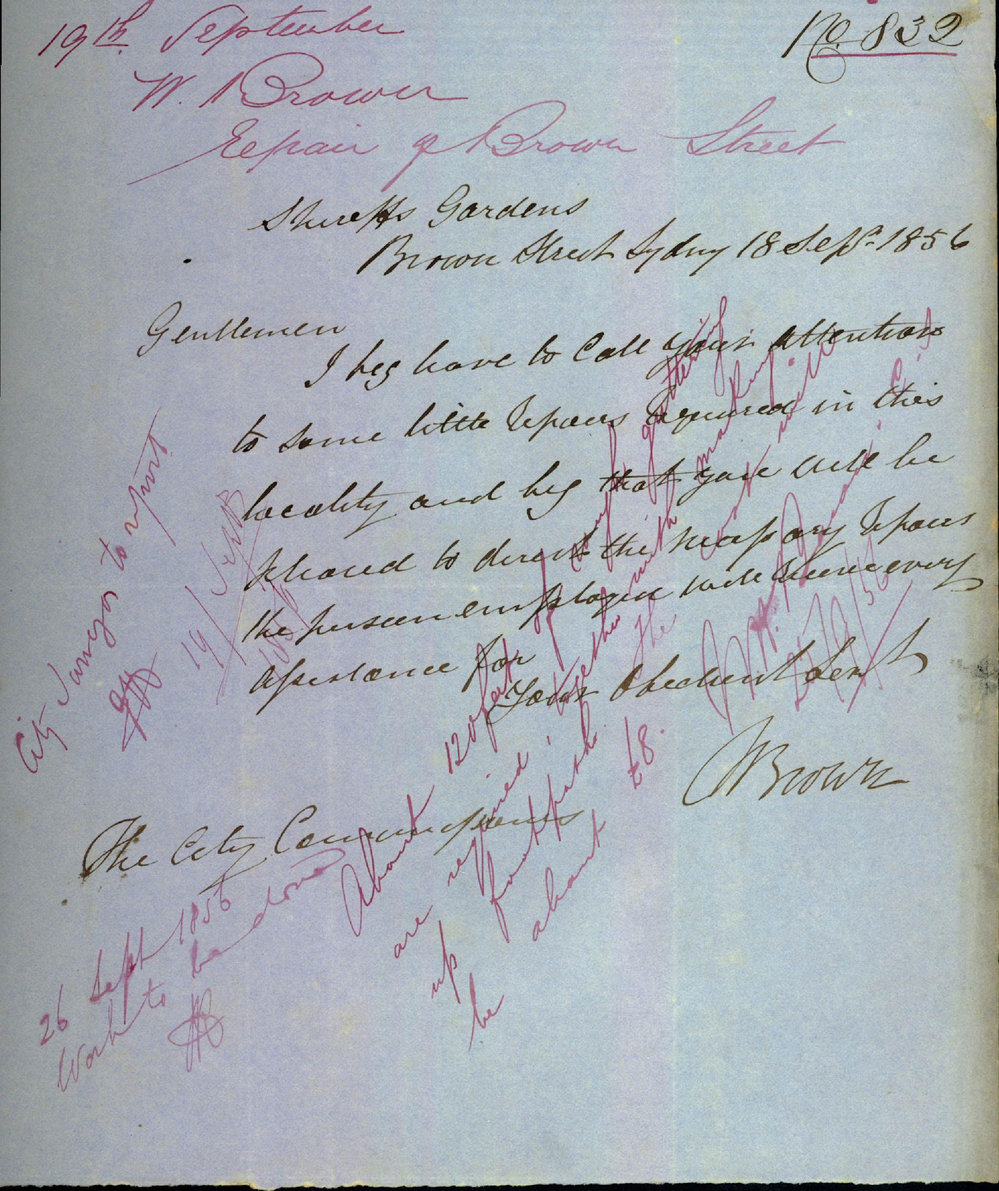 19th September
No. 832
W. Brown
Repair of Brown Street
Shereffs Gardens
Brown Street Sydney 18 Sept. 1856
Gentlemen
I beg leave to Call your attention
to some little repairs required in this
locality and beg that you will be
pleased to direct the necessary repairs
the person employed will receive every
assistance for
Your Obedient Servt
W Brown
The City Commissioners
City Surveyor to report
19/Sept
About 120 feet of Curb & guttering
are required, together with making
up footpath. The cost will
be about £8.
City
/9/56
26 Sept 1856
Work to be done